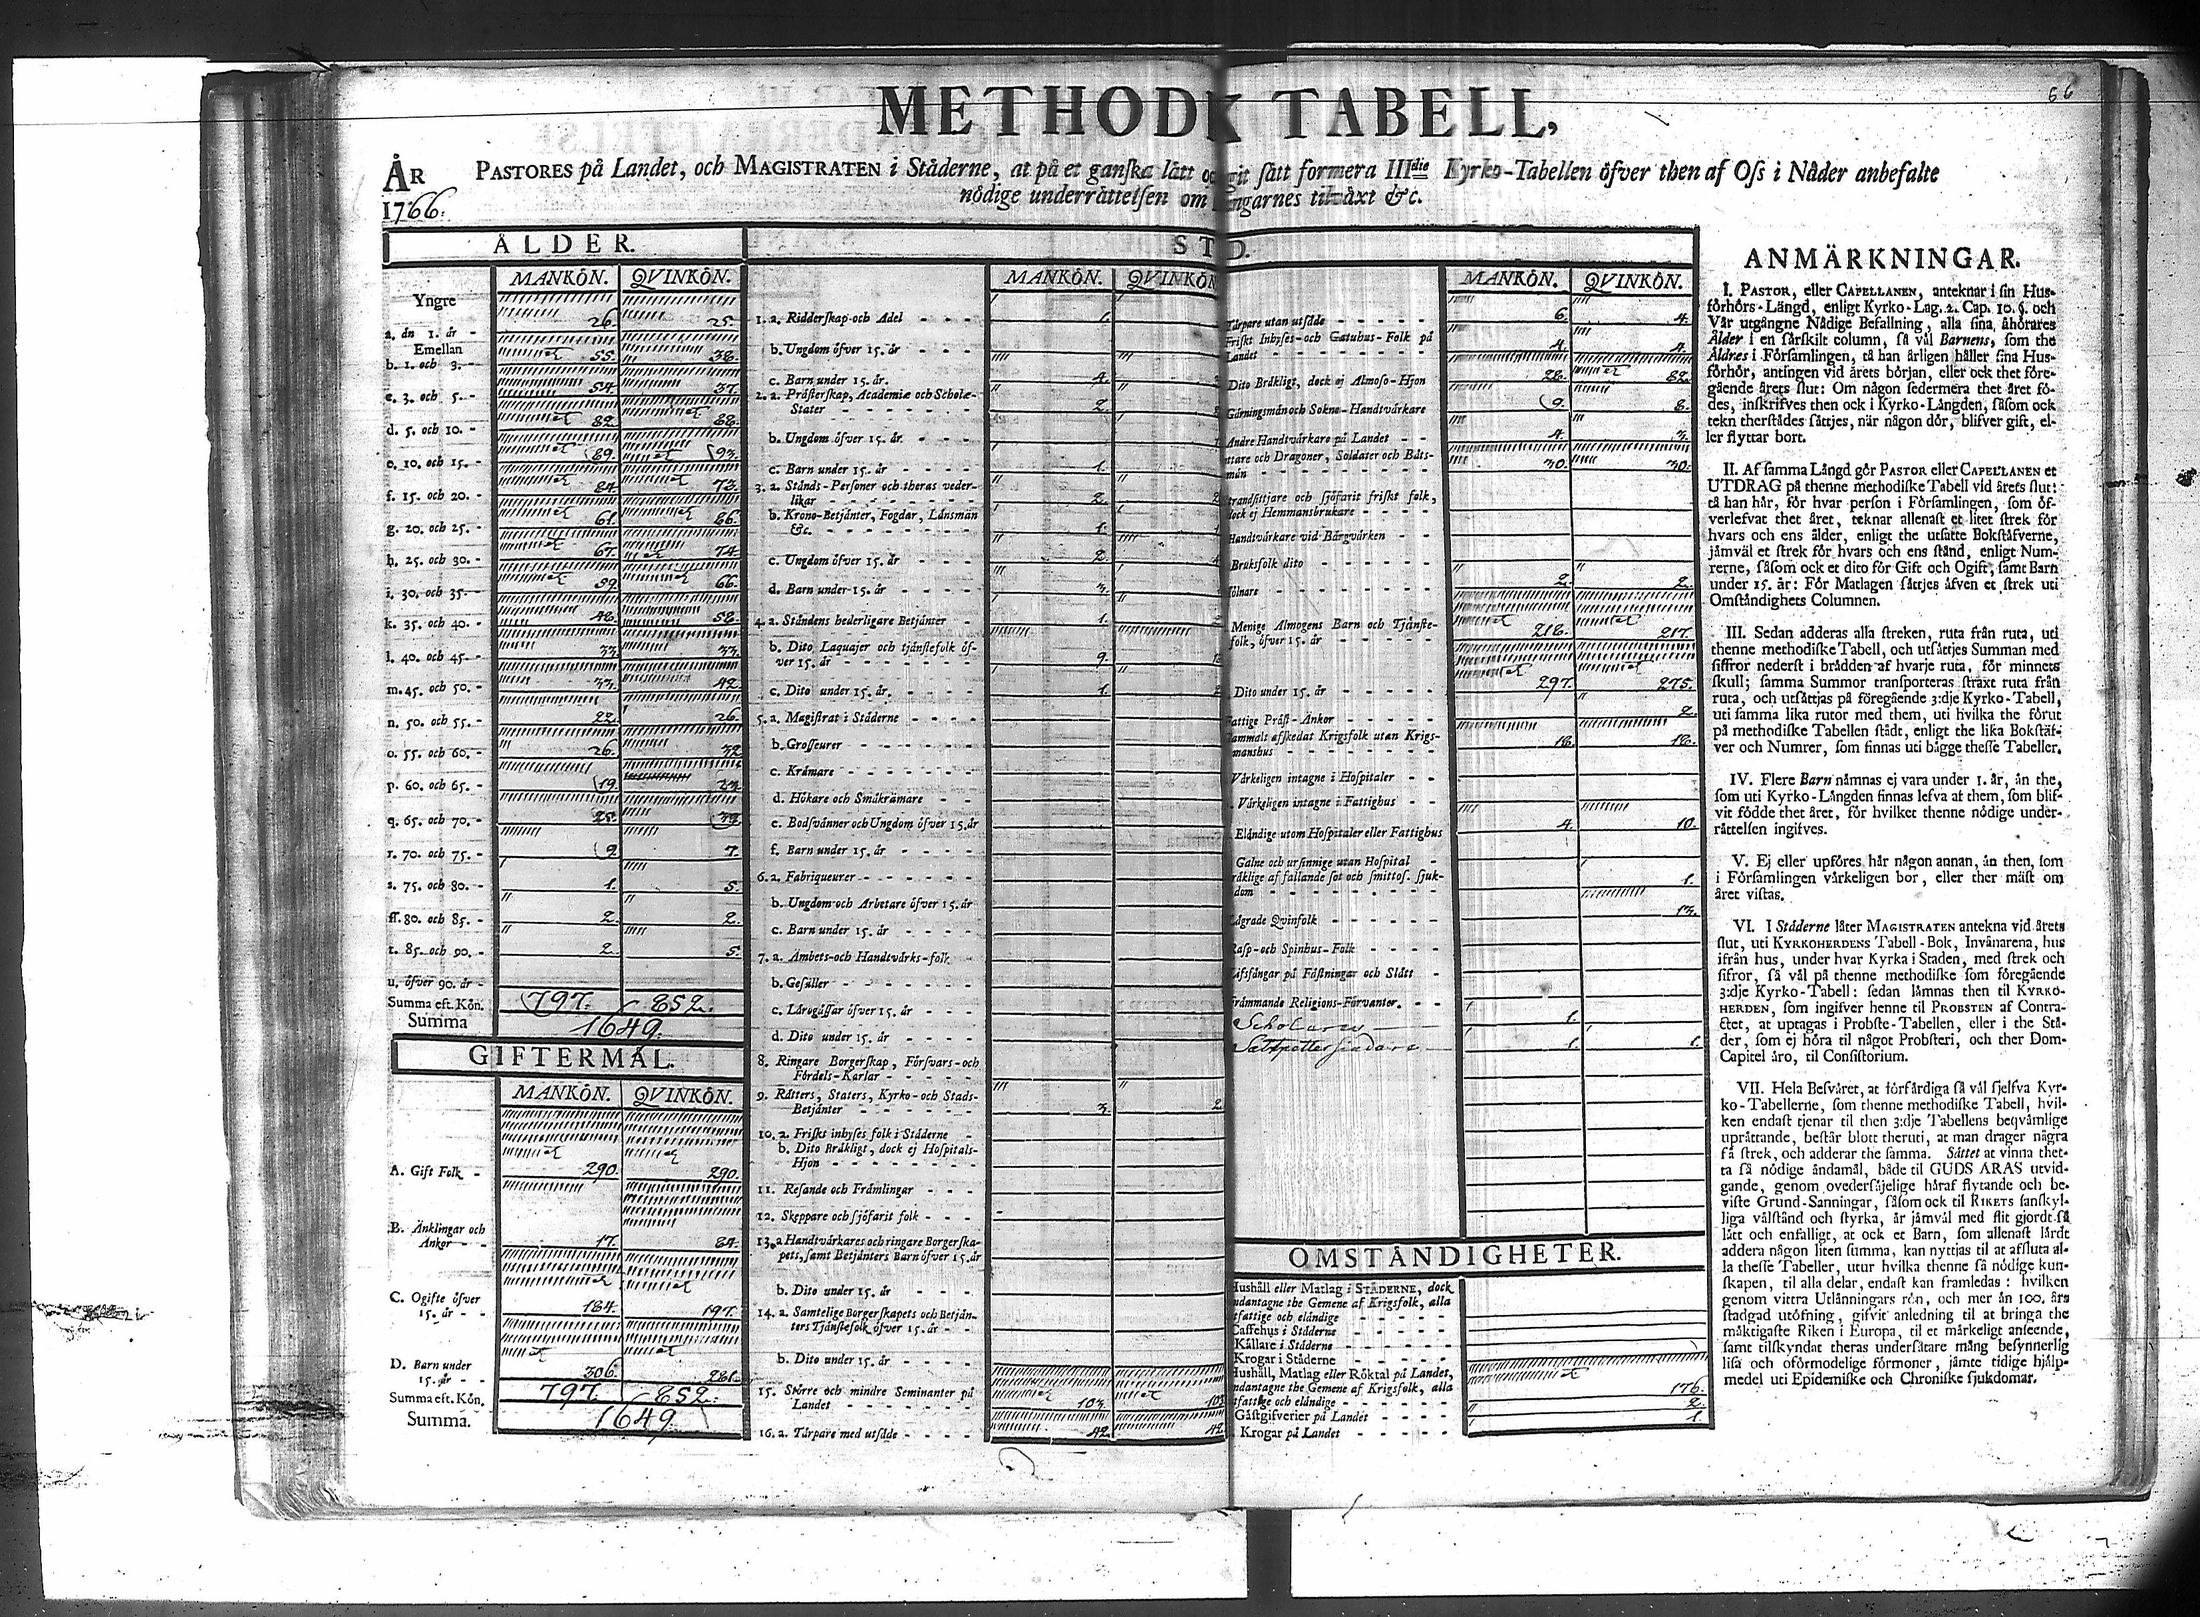 66
METHODK TABELL,
ÅR
1766.
PASTORES på Landet, och MAGISTRATEN i Städerne, at på et ganska lätt och git sätt formera IIIdie Kyrko-Tabellen öfver then af Oss i Nåder anbefalte
nödige underrättelsen om ngarnes tilväxt &c.
ÅLDER.
MANKÖN. QVINKÖN.
Yngre
a. än 1. år - 26. 25.
Emellan
b. 1. och 3. - 55. 38.
c. 3. och 5. - 54. 37.
d. 5. och 10. - 82. 88.
e. 10. och 15. - 89. 93.
f. 15. och 20. - 84. 73.
g. 20. och 25. - 61. 86.
h. 25. och 30. - 67. 74.
i. 30. och 35. - 59. 66.
k. 35. och 40. - 48. 58.
l. 40. och 45. - 33. 33.
m. 45. och 50. - 33. 42.
n. 50. och 55. - 22. 26.
o. 55. och 60. - 26. 32.
p. 60. och 65. - 19. 23.
q. 65. och 70. - 25. 39.
r. 70. och 75. - 9. 7.
s. 75. och 80. - 1. 5.
ss. 80. och 85. - 2. 2.
t. 85. och 90. - 2. 5.
u. öfver 90. år -
Summa eft. Kön. 797. 852.
Summa 1649.
GIFTERMÅL.
MANKÖN. QVINKÖN.
A. Gift Folk - 290. 290.
B. Änklingar och
Änkor - - 17. 84.
C. Ogifte öfver
15. år - - 184. 197.
D. Barn under
15. år - - 306. 281.
Summa eft. Kön. 797. 852.
Summa. 1649.
ST D.
MANKÖN. QVINKÖN
1. a. Ridderskap och Adel 1.
b. Ungdom öfver 15. år - - - -
c. Barn under 15. år. 4.
2. a. Prästerskap, Academiæ och Scholæ-
Stater - - - - - - 2.
b. Ungdom öfver 15. år. - - - -
c. Barn under 15. år - - - - 1.
3. a. Stånds-Personer och theras veder-
likar - - - - - - 2.
b. Krono-Betjänter, Fogdar, Länsmän
&c. - - - - - - 1.
c. Ungdom öfver 15. år - - - - 2. 4
d. Barn under 15. år - - - - 3.
4. a. Ståndens hederligare Betjänter - 1.
b. Dito Laquajer och tjänstefolk öf-
ver 15. år - - - - - 9.
c. Dito under 15. år. - - - - 1.
5. a. Magistrat i Städerne - - - -
b. Grosseurer - - - - - -
c. Krämare - - - - - -
d. Hökare och Småkrämare - -
e. Bodsvänner och Ungdom öfver 15. år
f. Barn under 15. år - - - -
6. a. Fabriqueurer - - - - - -
b. Ungdom och Arbetare öfver 15. år
c. Barn under 15. år - - - -
7. a. Ämbets- och Handtvärks-folk -
b. Gesäller - - - - - -
c. Lärogåssar öfver 15. år - - -
d. Dito under 15. år - - - -
8. Ringare Borgerskap, Försvars- och
Fördels-Karlar - - - - -
9. Rätters, Staters, Kyrko- och Stads-
Betjänter - - - - - - 3. 2
10. a. Friskt inhyses folk i Städerne -
b. Dito Bräkligt, dock ej Hospitals-
Hjon - - - - - - -
11. Resande och Främlingar - - -
12. Skeppare och sjöfarit folk - - -
13. a Handtvärkares och ringare Borgerska-
pets, samt Betjänters Barn öfver 15. år
b. Dito under 15. år - - -
14. a. Samtelige Borgerskapets och Betjän-
ters Tjänstefolk öfver 15. år - -
b. Dito under 15. år - - - -
15. Större och mindre Seminanter på
Landet - - - - - - 103. 103
16. a. Tårpare med utsäde - - - - 42. 42
MANKÖN. QVINKÖN.
Tårpare utan utsäde - - - - - 6. 4.
Friskt Inhyses- och Gatuhus-Folk på
Landet - - - - - - - 4. 4.
Dito Bräkligt, dock ej Almoso-Hjon 28. 82.
Gärningsmän och Sokne-Handtvärkare 9. 8.
Andre Handtvärkare på Landet - - 4. 3.
ttare och Dragoner, Soldater och Båts-
män - - - - - - - 30. 30.
trandsittjare och sjöfarit friskt folk,
dock ej Hemmansbrukare - - - -
Handtvärkare vid Bärgvärken - -
Bruksfolk dito - - - - - -
ölnare - - - - - - - 2. 2.
Menige Almogens Barn och Tjänste-
folk, öfver 15. år - - - - 218. 217.
Dito under 15. år - - - - - 297. 275.
attige Präst-Änkor - - - - - 2.
Gammalt afskedat Krigsfolk utan Krigs-
manshus - - - - - - - 18. 18.
Värkeligen intagne i Hospitaler - -
Värkeligen intagne i Fattighus - -
Eländige utom Hospitaler eller Fattighus 4. 10.
Galne och ursinnige utan Hospital -
räklige af fallande sot och smittos. sjuk-
dom - - - - - - - 1.
ägrade Qvinfolk - - - - - - 13.
Rasp- och Spinhus-Folk - - - -
Lifsfångar på Fästningar och Slått -
Främmande Religions-Förvanter. - -
1.
1. 1.
OMSTÄNDIGHETER.
Hushåll eller Matlag i STÄDERNE, dock
ndantagne the Gemene af Krigsfolk, alla
tfattige och eländige - - - - -
Caffehus i Städerne - - - - -
Källare i Städerne - - - - -
Krogar i Städerne - - - - -
Hushåll, Matlag eller Röktal på Landet,
ndantagne the Gemene af Krigsfolk, alla
tfattige och eländige - - - - - 176.
Gästgifverier på Landet - - - - 2.
Krogar på Landet - - - - - 1.
ANMÄRKNINGAR.
I. PASTOR, eller CAPELLANEN, anteknar i sin Hus-
förhörs-Längd, enligt Kyrko-Lag. 2. Cap. 10. §. och
Vår utgångne Nådige Befallning, alla sina åhörares
Ålder i en särskilt column, så väl Barnens, som the
Äldres i Församlingen, tå han årligen håller sina Hus-
förhör, antingen vid årets början, eller ock thet före-
gående årets slut: Om någon sedermera thet året fö-
des, inskrifves then ock i Kyrko-Längden, såsom ock
tekn therstädes sättjes, när någon dör, blifver gift, el-
ler flyttar bort.
II. Af samma Längd gör PASTOR eller CAPELLANEN et
UTDRAG på thenne methodiske Tabell vid årets slut:
tå han här, för hvar person i Församlingen, som öf-
verlefvat thet året, teknar allenast et litet strek för
hvars och ens ålder, enligt the utsatte Bokstäfverne,
jämväl et strek för hvars och ens stånd, enligt Num-
rerne, såsom ock et dito för Gift och Ogift, samt Barn
under 15. år: För Matlagen sättjes äfven et strek uti
Omständighets Columnen.
III. Sedan adderas alla streken, ruta från ruta, uti
thenne methodiske Tabell, och utsättjes Summan med
siffror nederst i brädden af hvarje ruta, för minnets
skull; samma Summor transporteras straxt ruta från
ruta, och utsättjas på föregående 3:dje Kyrko-Tabell,
uti samma lika rutor med them, uti hvilka the förut
på methodiske Tabellen städt, enligt the lika Bokstäf-
ver och Numrer, som finnas uti bägge thesse Tabeller.
IV. Flere Barn nämnas ej vara under 1. år, än the,
som uti Kyrko-Längden finnas lefva at them, som blif-
vit födde thet året, för hvilket thenne nödige under-
rättelsen ingifves.
V. Ej eller upföres här någon annan, än then, som
i Församlingen värkeligen bor, eller ther mäst om
året vistas.
VI. I Städerne låter MAGISTRATEN antekna vid årets
slut, uti KYRKOHERDENS Tabell-Bok, Invånarena, hus
ifrån hus, under hvar Kyrka i Staden, med strek och
sifror, så väl på thenne methodiske som föregående
3:dje Kyrko-Tabell: sedan lämnas then til KYRKO-
HERDEN, som ingifver henne til PROBSTEN af Contra-
ctet, at uptagas i Probste-Tabellen, eller i the Stä-
der, som ej höra til något Probsteri, och ther Dom-
Capitel äro, til Consistorium.
VII. Hela Besväret, at förfärdiga så väl sjelfva Kyr-
ko-Tabellerne, som thenne methodiske Tabell, hvil-
ken endast tjenar til then 3:dje Tabellens beqvämlige
uprättande, består blott theruti, at man drager några
få strek, och adderar the samma. Sättet at vinna thet-
ta så nödige ändamål, både til GUDS ÄRAS utvid-
gande, genom ovedersäjelige häraf flytande och be-
viste Grund-Sanningar, såsom ock til RIKETS sanskyl-
liga välstånd och styrka, är jämväl med flit gjordt så
lätt och enfalligt, at ock et Barn, som allenast lärdt
addera någon liten summa, kan nyttjas til at affluta al-
la thesse Tabeller, utur hvilka thenne så nödige kun-
skapen, til alla delar, endast kan framledas: hvilken
genom vittra Utlänningars rön, och mer än 100. års
stadgad utöfning, gifvit anledning til at bringa the
mäktigaste Riken i Europa, til et märkeligt anseende,
samt tilskyndat theras undersåtare mång besynnerlig
lisa och oförmodelige förmoner, jämte tidige hjälp-
medel uti Epidemiske och Chroniske sjukdomar.